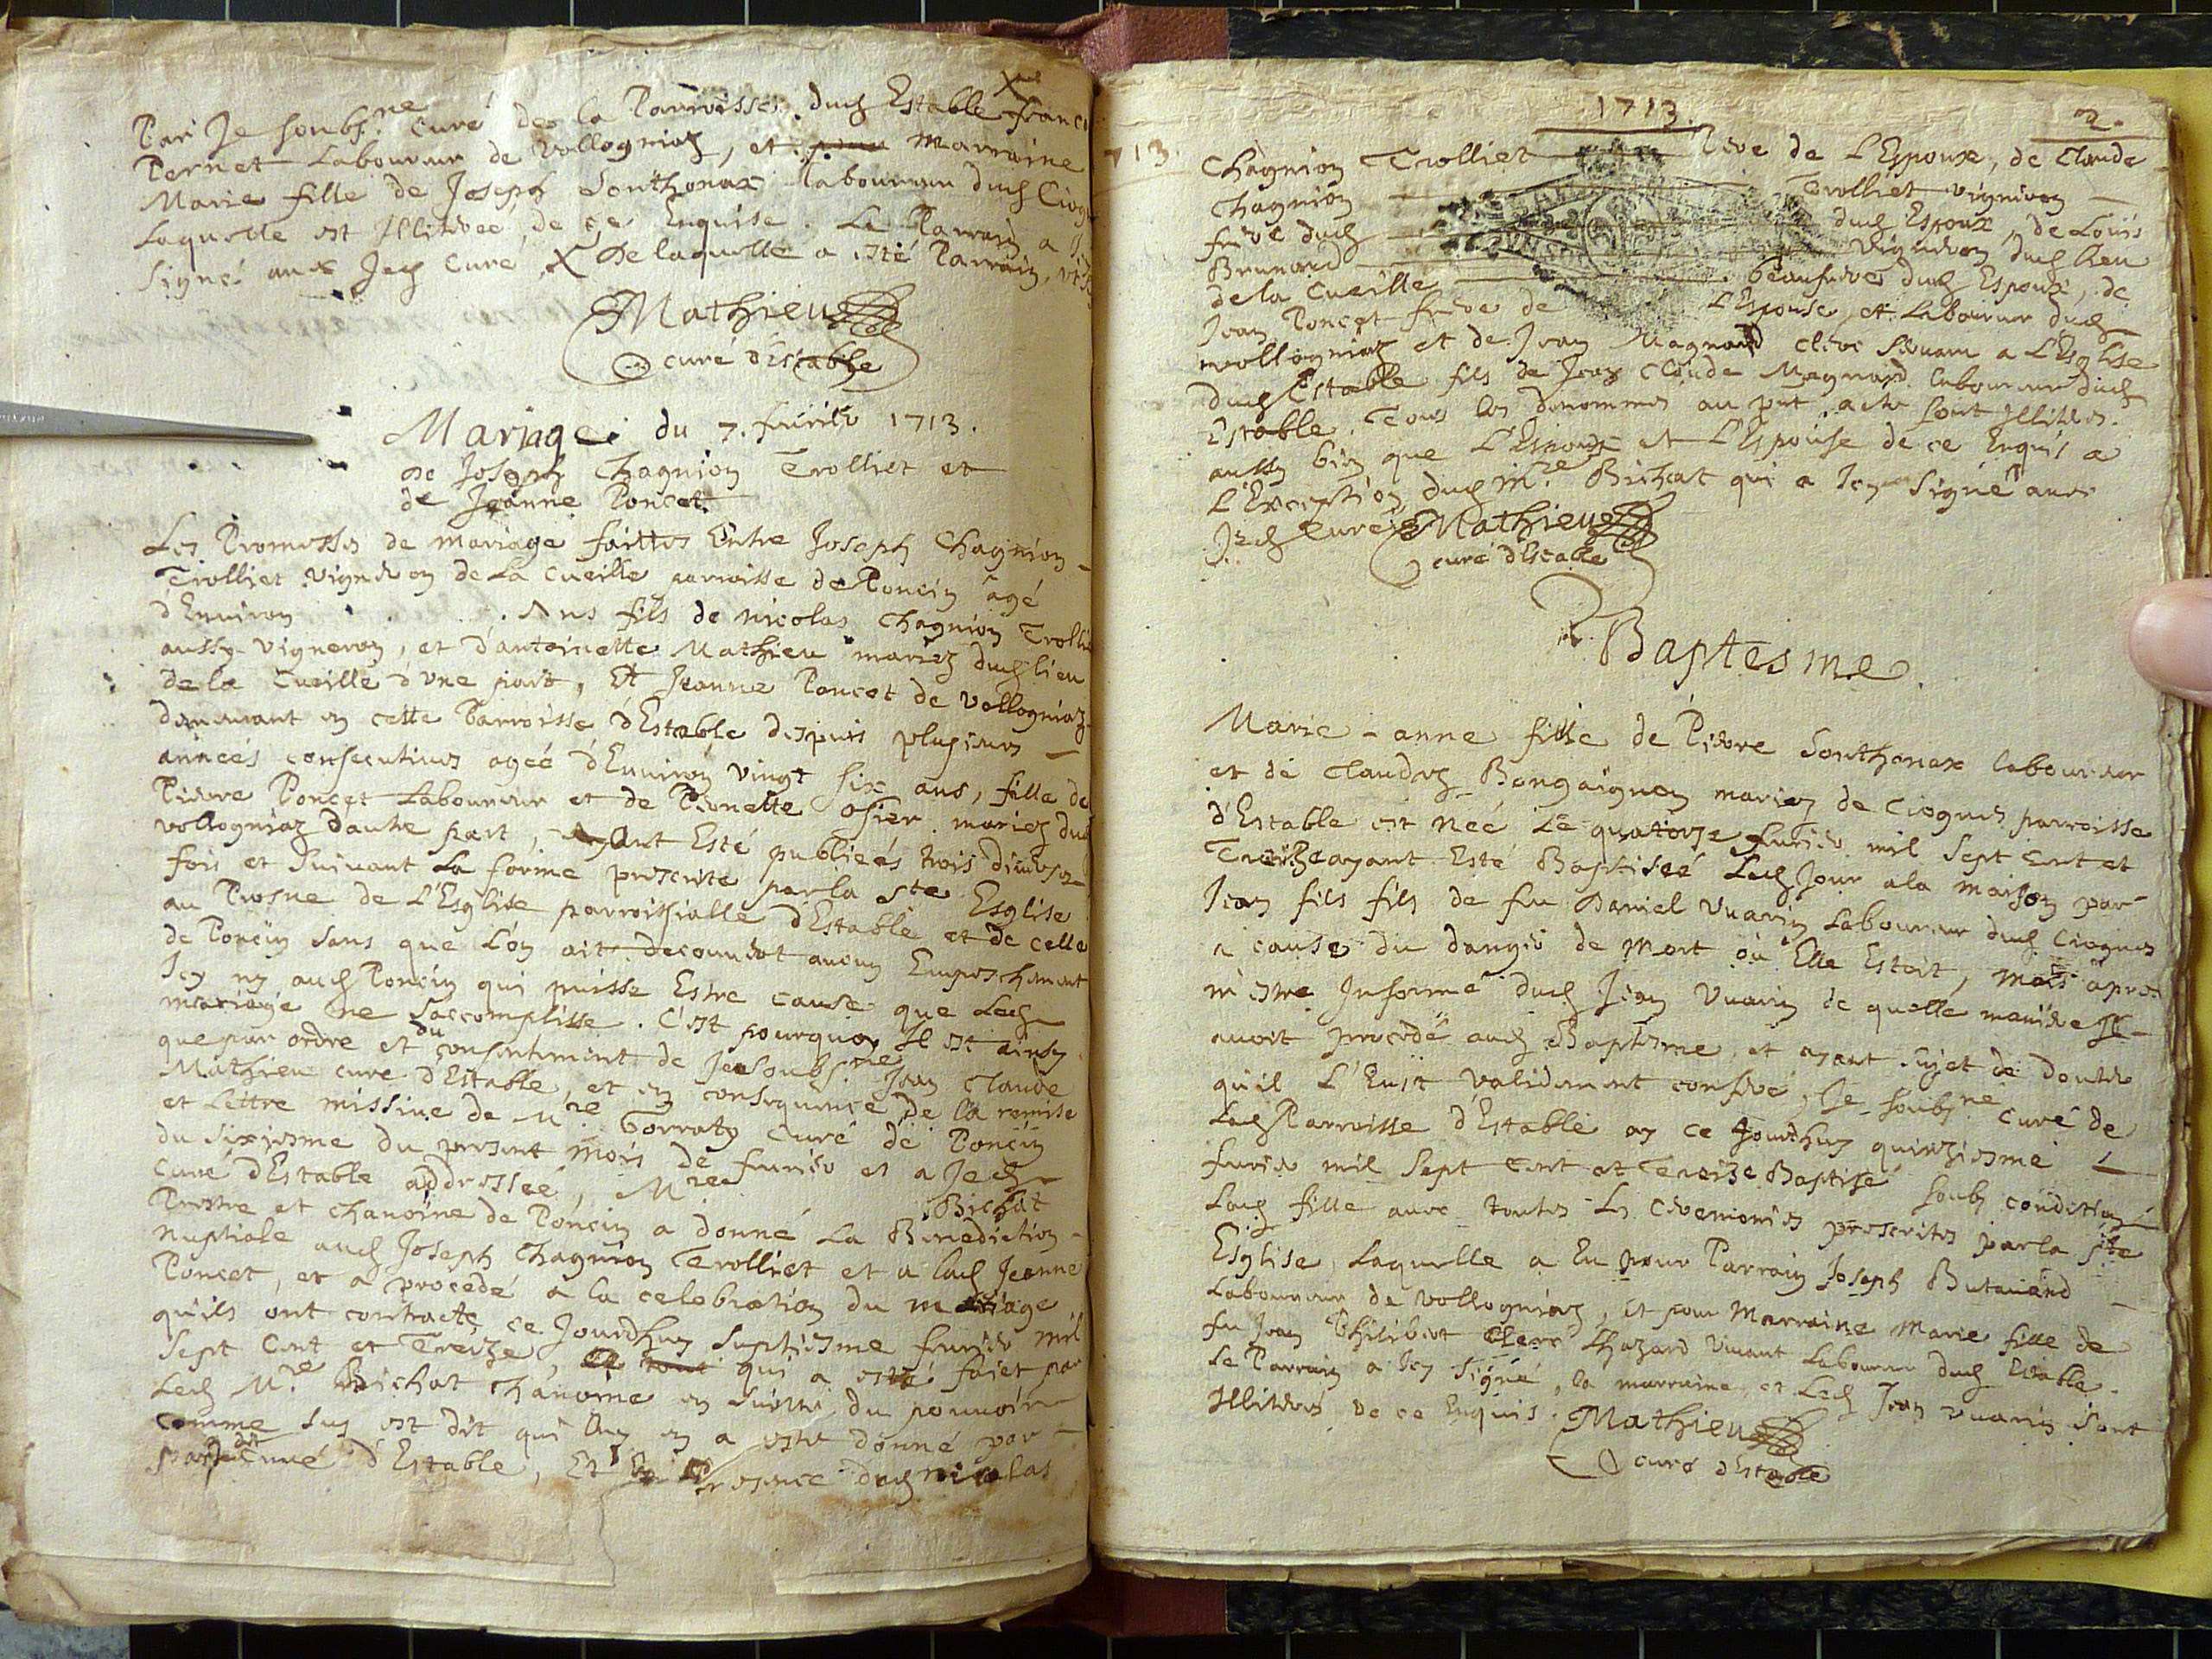 Par Je soubs.ne Curé de la Parroisse dud Estable X
Pernet Laboureur de Vollogniaz, et pour Marraine
Marie fille de Joseph Sonthonax laboureur dud
Laquelle est Illitérée, de ce Enquise. Le Parrain a
signé avec Jed Curé X De laquelle a esté Parrain,
Mathieu
curé d'Estable
Mariage du 7. février 1713.
de Joseph Chagnion Trolliet et
de Jeanne Poncet.
Les Promesses de mariage faittes Entre Joseph Chagnion -
Trolliet vigneron de La Cueille parroisse de Poncin âgé
d'Environ . . . . Ans fils de Nicolas Chagnion
aussy vigneron, et d'antoinette Mathieu mariez dud lieu
de la Cueille d'une part, Et Jeanne Poncet de Vollogniaz
demeurant en cette Parroisse d'Estable despuis plusieurs -
années consecutives agée d'Environ vingt six ans, fille de
Pierre Poncet Laboureur et de Pernette Osier mariez dud
vollogniaz d'autre part, ayant Esté publieés trois diverses
fois et suivant La forme prescrite par la ste Esglise
au Prosne de L'Esglise parroissialle d'Estable et de celle
de Poncin sans que L'on ait decouvert aucun Empeschement
Icy ny aud Poncin qui puisse Estre cause que Led
mariage ne s'accomplisse. C'est pourquoy Il est ainsy
que par ordre et du consentement de Je soubs.ne Jean Claude
Mathieu curé d'Estable, et en consequence de la remise
et Lettre missive de Mre Gorraty Curé de Poncin
du sixiesme du present mois de fevrier et a Jed
Curé d'Estable addressée, Mre Bichat
Prestre et chanoine de Poncin a donné La Benediction -
nuptiale aud Joseph Chagnion Trolliet et a lad Jeanne
Poncet, et a procedé a la celebration du mariage
qu'ils ont contracté ce Jourdhuy septiesme fevrier mil
sept Cent et Treize, qui a esté fait par
Led Mre Bichat Chanoine en suitte du pouvoir
comme sus est dit qui luy en a esté donné par -
Curé d'Estable, Et En Presence dud nicolas
1713.
2.
Chagnion Trolliet Pere de L'Espoux, de Claude
Chagnion Trolliet vigneron -
frere dud Espoux, de Loüis
Brunard vigneron dud lieu
de la Cueille beaufrere dud Espoux, de
Jean Poncet frere de L'Espouse, et Laboureur dud
vollogniaz et de Jean Magnard clerc servant a L'Esglise
dud Estable fils de Jean Claude Magnard laboureur dud
Estable. Tous les denommes au pnt acte sont Illitérés.
aussy bien que L'Espoux et L'Espouse de ce Enquis a
L'Exception dud Mre Bichat qui a Icy signé avec
Jed Curé Mathieu
curé d'Estable
Baptesme.
Marie-anne fille de Pierre Sonthonax laboureur
et de Claudyz Bongaignon mariez de Ciognes parroisse
d'Estable est néé Le quatorze fevrier mil sept cent et
Treize ayant Esté Baptiseé Led Jour a la maison par
Jean fils fils de feu Daniel Vuarin Laboureur dud Ciognes
a cause du danger de mort où Elle Estoit, mais apres
m'estre Informé dud Jean Vuarin de quelle maniere Il -
avoit procedé aud Baptesme, et ayant sujet de douter
qu'il L'Eust validement conferé, Je soubs.ne Curé de
Lad Parroisse d'Estable ay ce Jourdhuy quinziesme
fevrier mil sept Cent et Treize Baptisé soubs condition
Lad fille avec toutes Les Ceremonies prescrites par la ste
Esglise, Laquelle a Eu pour Parrain Joseph Butavand -
Laboureur de Vollogniaz, Et pour Marraine Marie fille de
feu Jean Philibert Chazard vivant Laboureur dud Estable.
Le Parrain a Icy signé, la marraine, et Led Jean Vuarin sont
Illitérés de ce Enquis. Mathieu
curé d'Estable